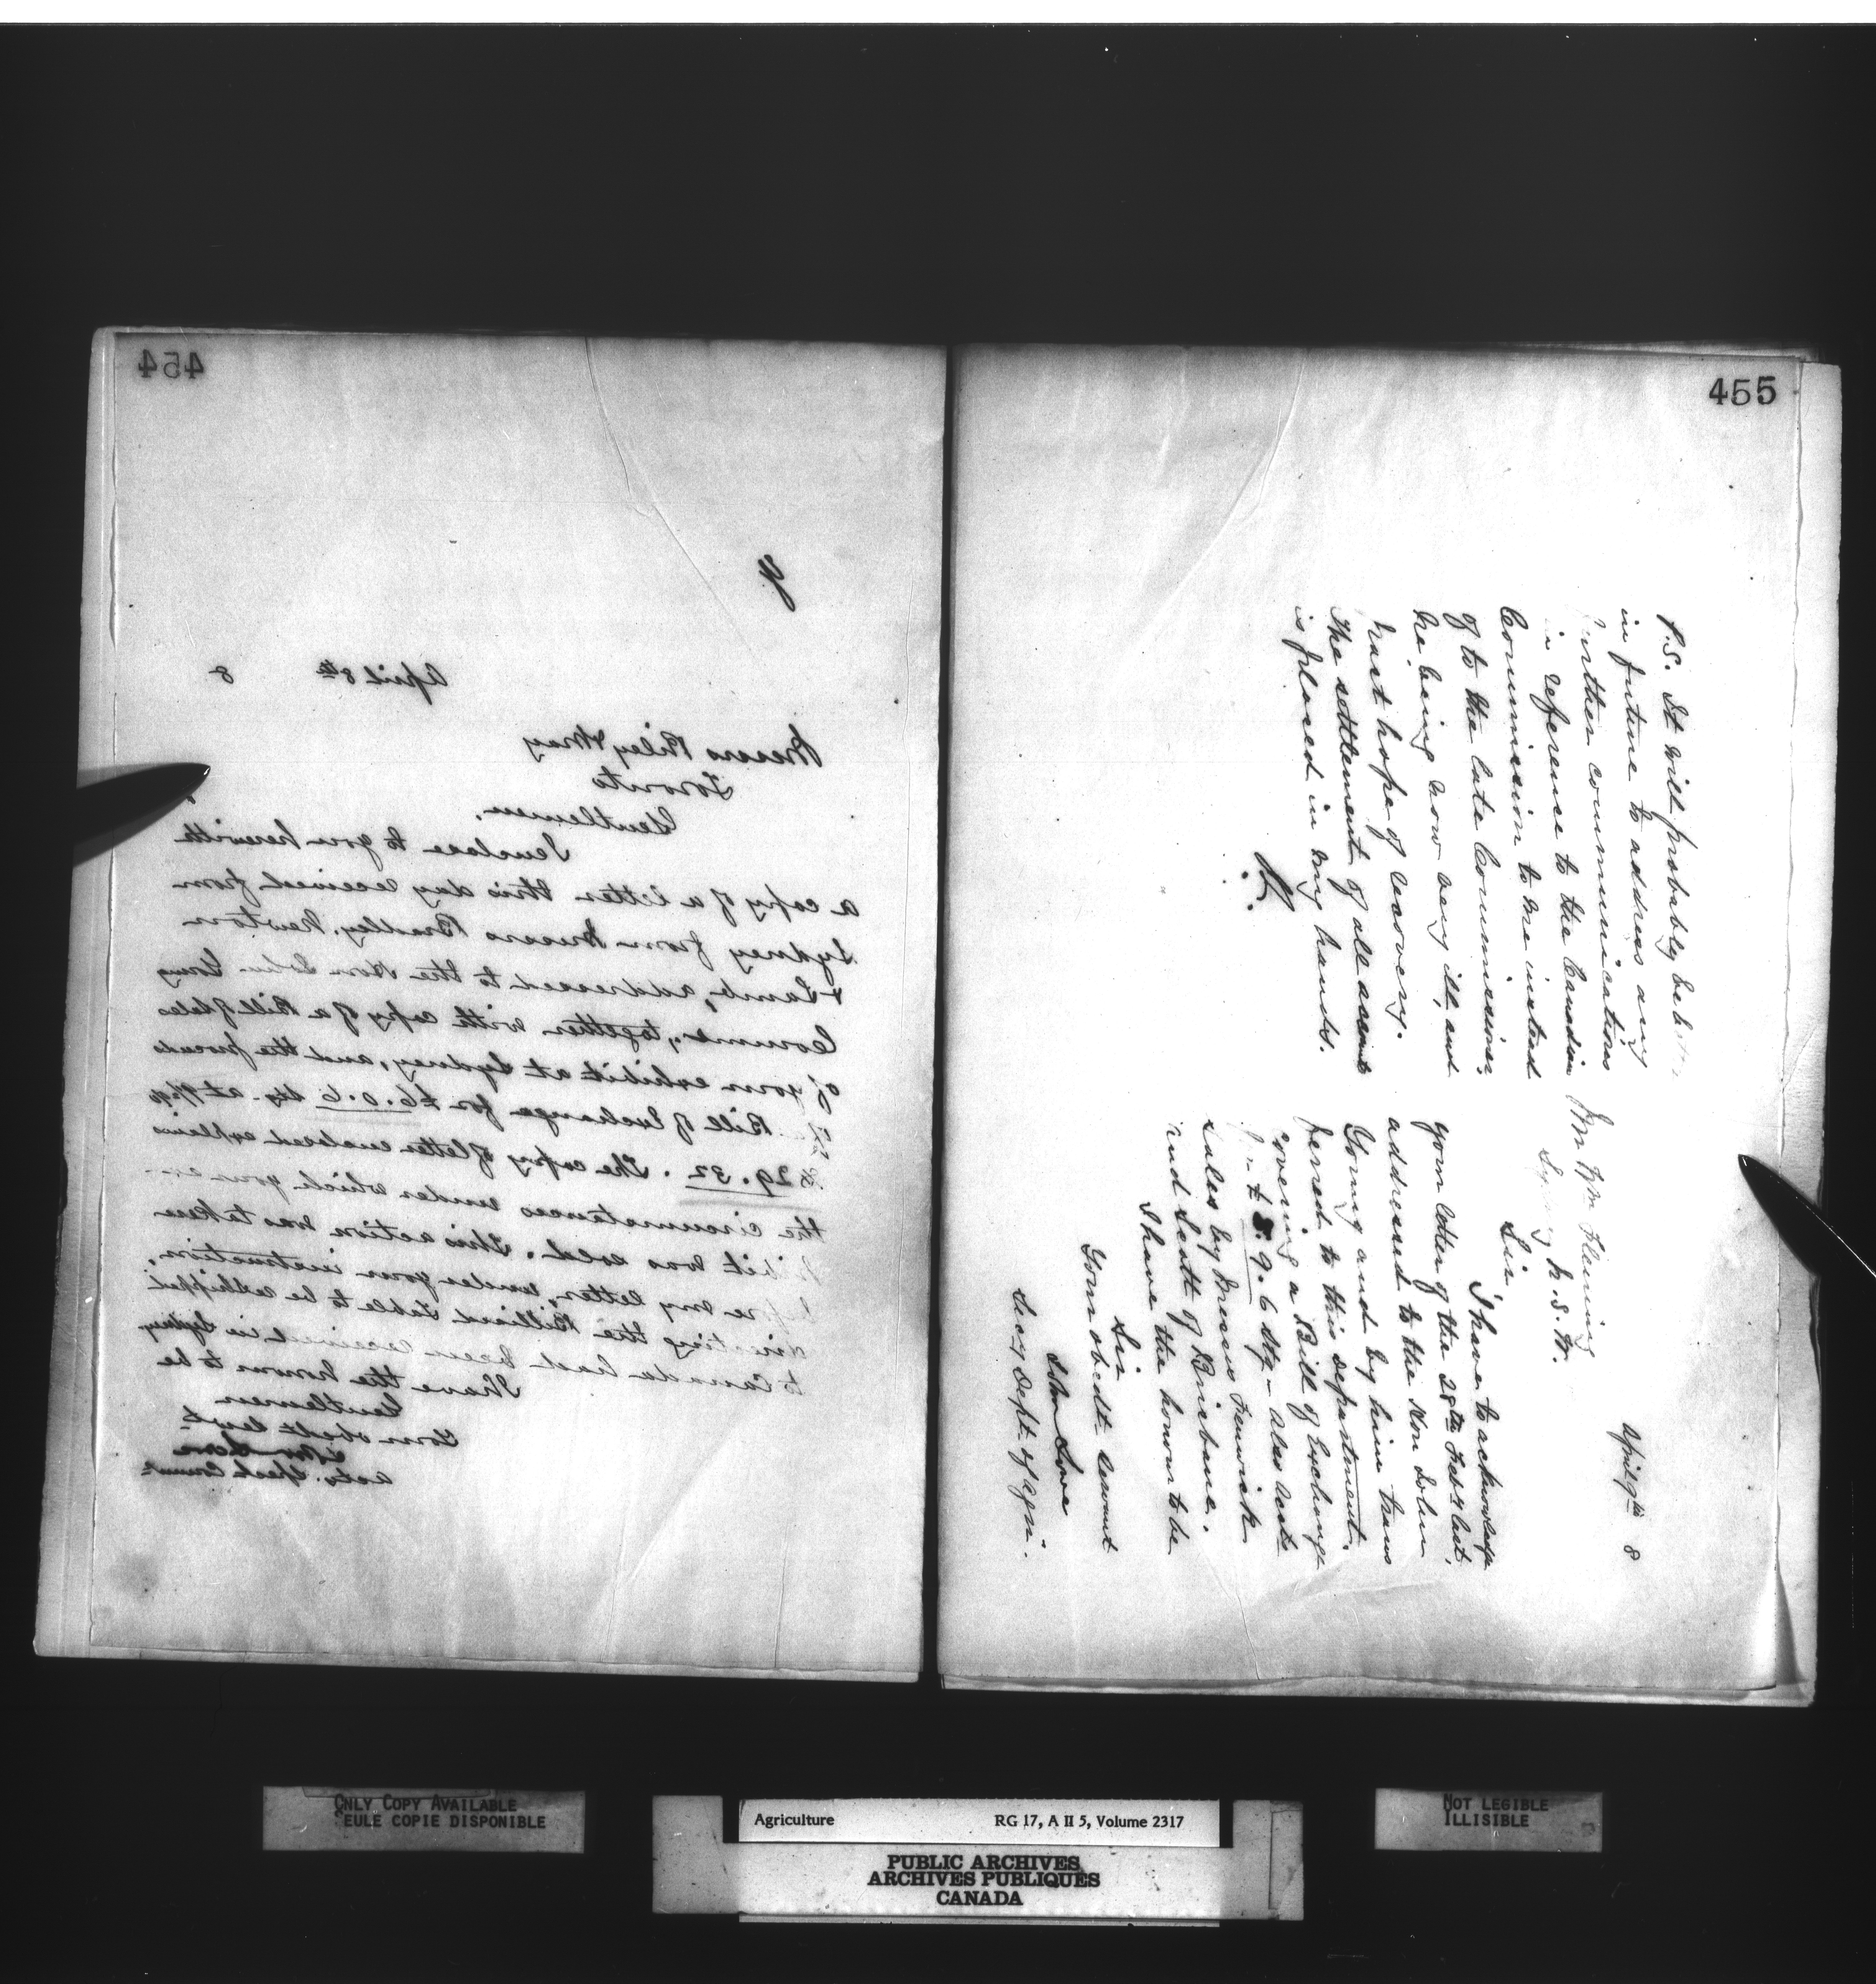 454
April 8th 8
Messrs Riley & May
Toronto
Gentlemen,
I enclose to you herewith
a copy of a letter this day received from
Sydney from Messrs Bradley, Newton
& Lamb, addressed to the Hon John Young
Commr, together with copy of a Bill of Sales
of your exhibit at Sydney, and the proceeds
Bill of Exchange for £6.0.6 Stg. at
29.32. The copy of letter enclosed explains
the circumstances under which your ex-
hibit was sold. This action was taken
before my letter, under your instruction,
directing the Billiard Table to be reshipped
to Canada had been received in Sydney
I have the honor to be
Gentlemen
Your obedt Servt
John Lowe
Actg.
455
April 9th 8
Mr Wm Fleming
Sydney N.S.W.
Sir
I have to acknowledge
your letter of the 28th Feby last,
addressed to the Hon John
Young and by him trans
ferred to this department.
covering a Bill of Exchange
for £ 5.9.6 Stg - also acct
sales by Messrs Fenwick
and Scott of Brisbane.
I have the honour to be
Sir
Your obedt Servant
John Lowe
Secy Dept. of Agri.
P.S. It will probably be better
in future to address any
further communications
in reference to the Canadian
Commission to me instead
of to the late Commissioner,
he being now very ill, and
past hope of recovery.
The settlement of all accounts
is placed in my hands.
ONLY COPY AVAILABLE
SEULE COPIE DISPONIBLE
Agriculture RG 17, A II 5, Volume 2317
PUBLIC ARCHIVES
ARCHIVES PUBLIQUES
CANADA
NOT LEGIBLE
ILLISIBLE